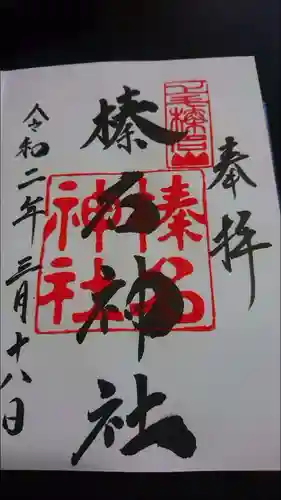 奉拝
上毛榛名山
榛名神社
榛名神社
令和二年三月十八日